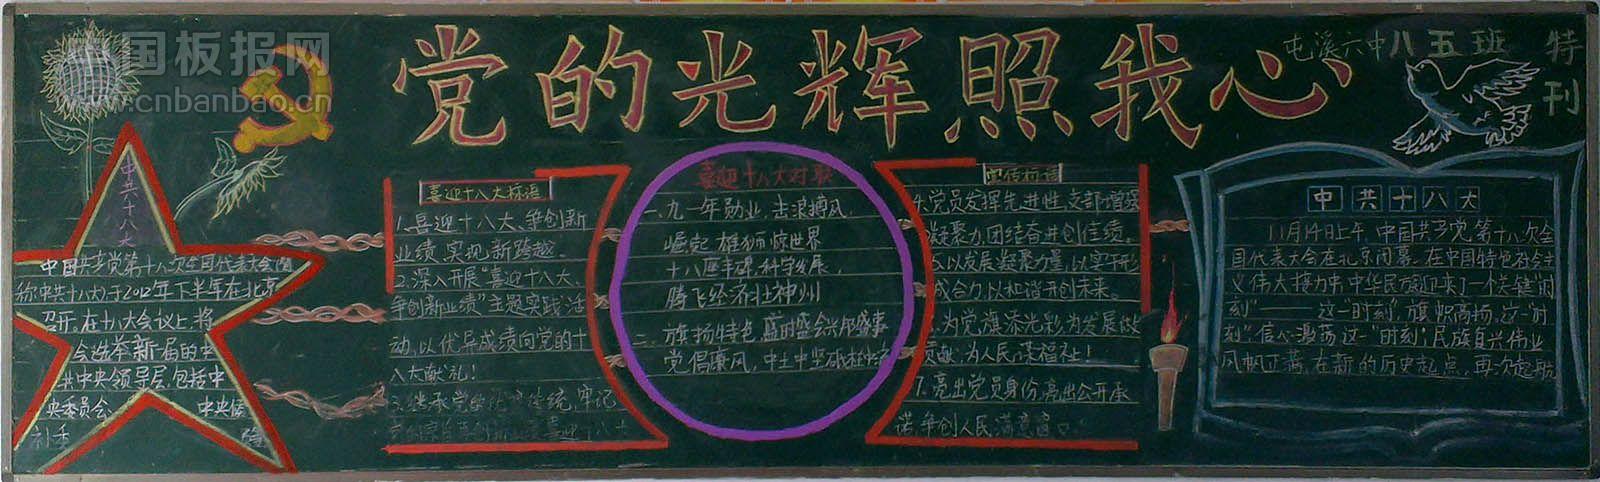 中国板报网
www.cnbanbao.cn
党的光辉照我心
屯溪六中八五班
特刊
中共十八大
中国共产党第十八次全国代表大会(简
称中共十八大),于2012年下半年在北京
召开。在十八大会议上,将
会选举新一届的中
共中央领导层,包括中
央委员会、 中央候
补委
喜迎十八大标语
1.喜迎十八大、争创新
业绩,实现新跨越。
2.深入开展“喜迎十八大、
争创新业绩”主题实践活
动,以优异成绩向党的十
八大献礼!
3.继承党的 传统,牢记
喜迎十八大
喜迎十八大对联
一.九一年勋业,击浪搏风,
崛起雄狮惊世界
十八座丰碑,科学发展,
腾飞经济壮神州
二.旗扬特色,蓝时盛会兴邦盛事
党倡廉风,中土中坚砥柱
宣传标语
4.党员发挥先进性,支部增强
凝聚力,团结奋进创佳绩。
5.以发展凝聚力量,以实干形
成合力,以和谐开创未来。
6.为党旗添光彩,为发展做
贡献,为人民谋福祉!
7.亮出党员身份,亮出公开承
诺,争创人民满意窗口
中共十八大
11月14日上午,中国共产党第十八次全
国代表大会在北京闭幕。在中国特色社会主
义伟大接力中,中华民族迎来了一个关键“时
刻”——这一“时刻”,旗帜高扬,这一“时
刻”,信心激荡,这一“时刻”,民族自兴伟业
风帆正满,在新的历史起点,再次起航